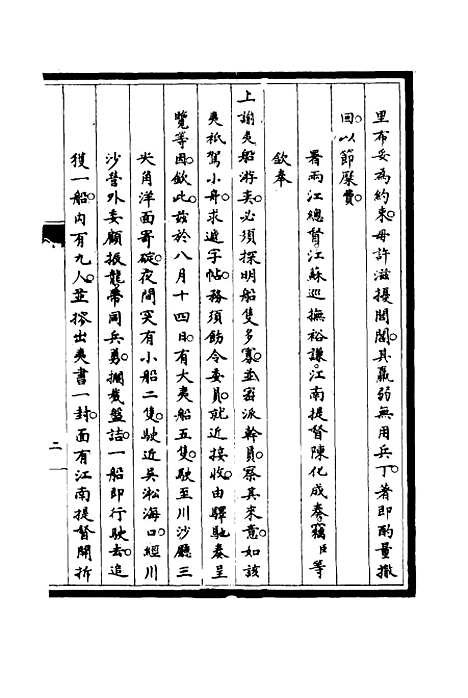 里布妥為約束毋許滋擾閭閻其羸弱無用兵丁著即酌量撤
回以節糜費
署兩江總督江蘇巡撫裕謙江南提督陳化成奏竊臣等
欽奉
上諭夷船游奕必須探明船隻多寡並召派幹員察其來意如該
夷祇駕小舟求遞字帖務須飭令委員就近接收由驛馳奏呈
覽等因欽此茲於八月十四日有大夷船五隻駛至川沙廳三
尖角洋面寄碇夜間突有小船二隻駛近吳淞海口經川
沙營外委顧振龍帶同兵勇攔截盤詰一船即行駛去追
獲一船內有九人並搜出夷書一封面有江南提督開拆
二